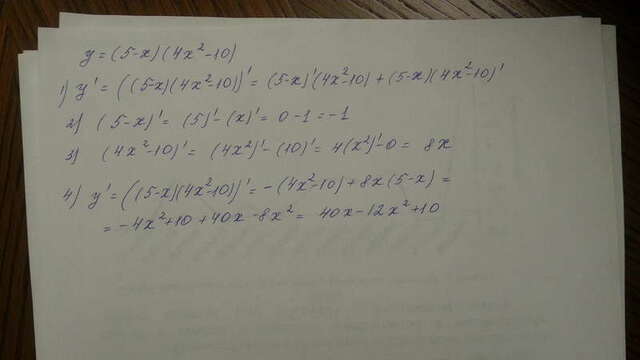 y = (5-x)(4x²-10)
1) y' = ((5-x)(4x²-10))' = (5-x)'(4x²-10) + (5-x)(4x²-10)'
2) (5-x)' = (5)' - (x)' = 0 - 1 = -1
3) (4x²-10)' = (4x²)' - (10)' = 4(x²)' - 0 = 8x
4) y' = ((5-x)(4x²-10))' = -(4x²-10) + 8x(5-x) =
= -4x²+10+40x-8x² = 40x-12x²+10